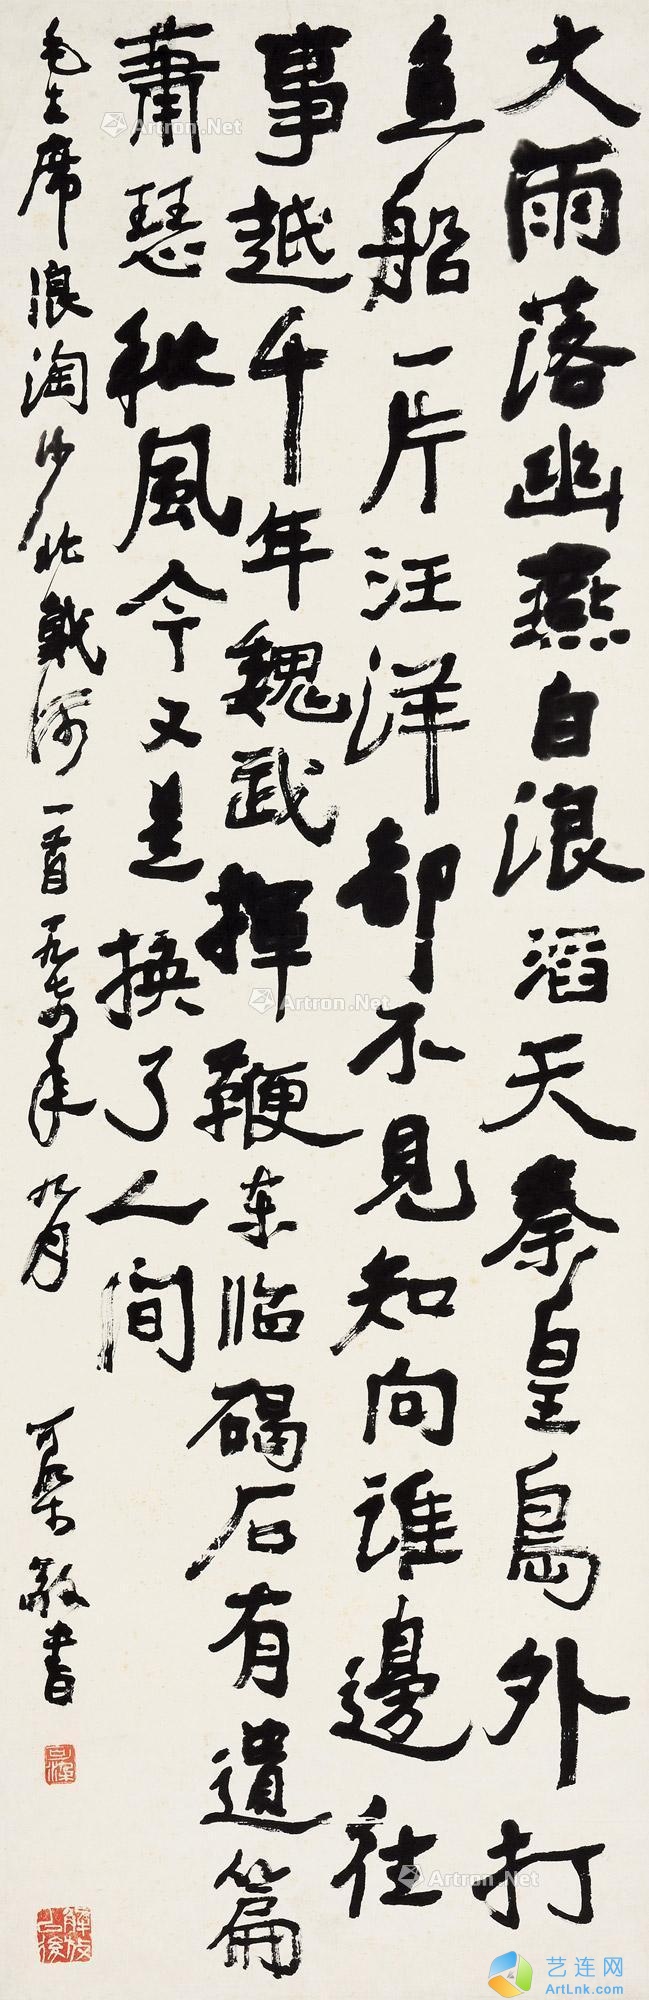 大雨落幽燕白浪滔天秦皇島外打
鱼船一片汪洋都不見知向誰邊往
事越千年魏武揮鞭东临碣石有遺篇
蕭瑟秋風今又是換了人间
毛主席浪淘沙北戴河一首一九七四年九月 可染敬書
Artron.Net
Artron.Net
Artron.Net
Artron.Net
艺连网
ArtLnk.com